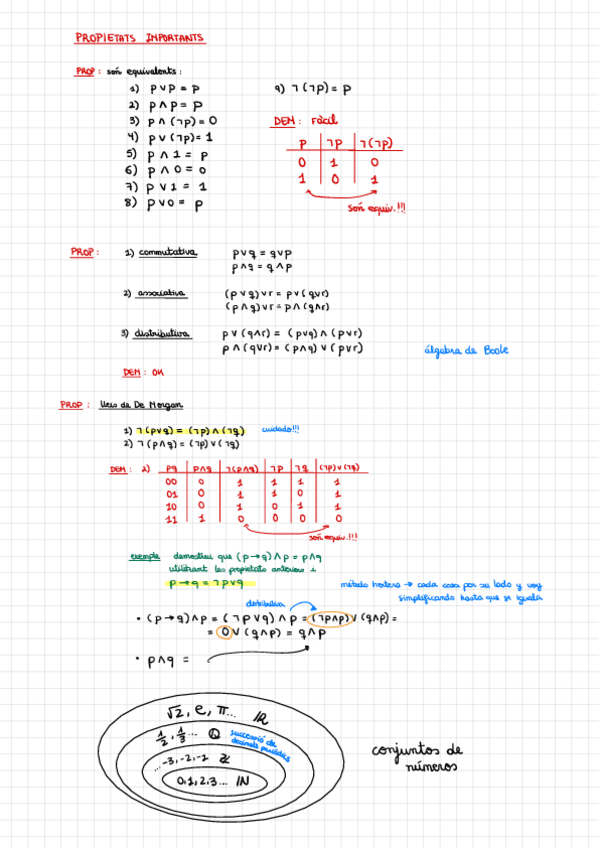 PROPIETATS IMPORTANTS
PROP: són equivalents:
1) p∨p = p
2) p∧p = p
3) p∧(¬p) = 0
4) p∨(¬p) = 1
5) p∧1 = p
6) p∧0 = 0
7) p∨1 = 1
8) p∨0 = p
9) ¬(¬p) = p
DEM: Fàcil
p ¬p ¬(¬p)
0 1 0
1 0 1
són equiv.!!!
PROP: 1) commutativa p∨q = q∨p
p∧q = q∧p
2) associativa (p∨q)∨r = p∨(q∨r)
(p∧q)∨r = p∧(q∧r)
3) distributiva p∨(q∧r) = (p∨q)∧(p∨r)
p∧(q∨r) = (p∧q)∨(p∨r)
álgebra de Boole
DEM: OK
PROP: Lleis de De Morgan
1) ¬(p∨q) = (¬p)∧(¬q) cuidado!!!
2) ¬(p∧q) = (¬p)∨(¬q)
DEM: 2) pq p∧q ¬(p∧q) ¬p ¬q (¬p)∨(¬q)
00 0 1 1 1 1
01 0 1 1 0 1
10 0 1 0 1 1
11 1 0 0 0 0
són equiv.!!!
exemple demostreu que (p→q)∧p = p∧q
utilitzant les propietats anteriors i
p→q = ¬p∨q
método hostera → cada cosa por su lado y voy
simplificando hasta que se iguala
distributiva
• (p→q)∧p = (¬p∨q)∧p = (¬p∧p)∨(q∧p) =
= 0∨(q∧p) = q∧p
• p∧q =
√2, e, π... ℝ
1/2, 1/3... ℚ
successió de
decimals periòdics
...-3,-2,-1 ℤ
0,1,2,3... ℕ
conjuntos de
números